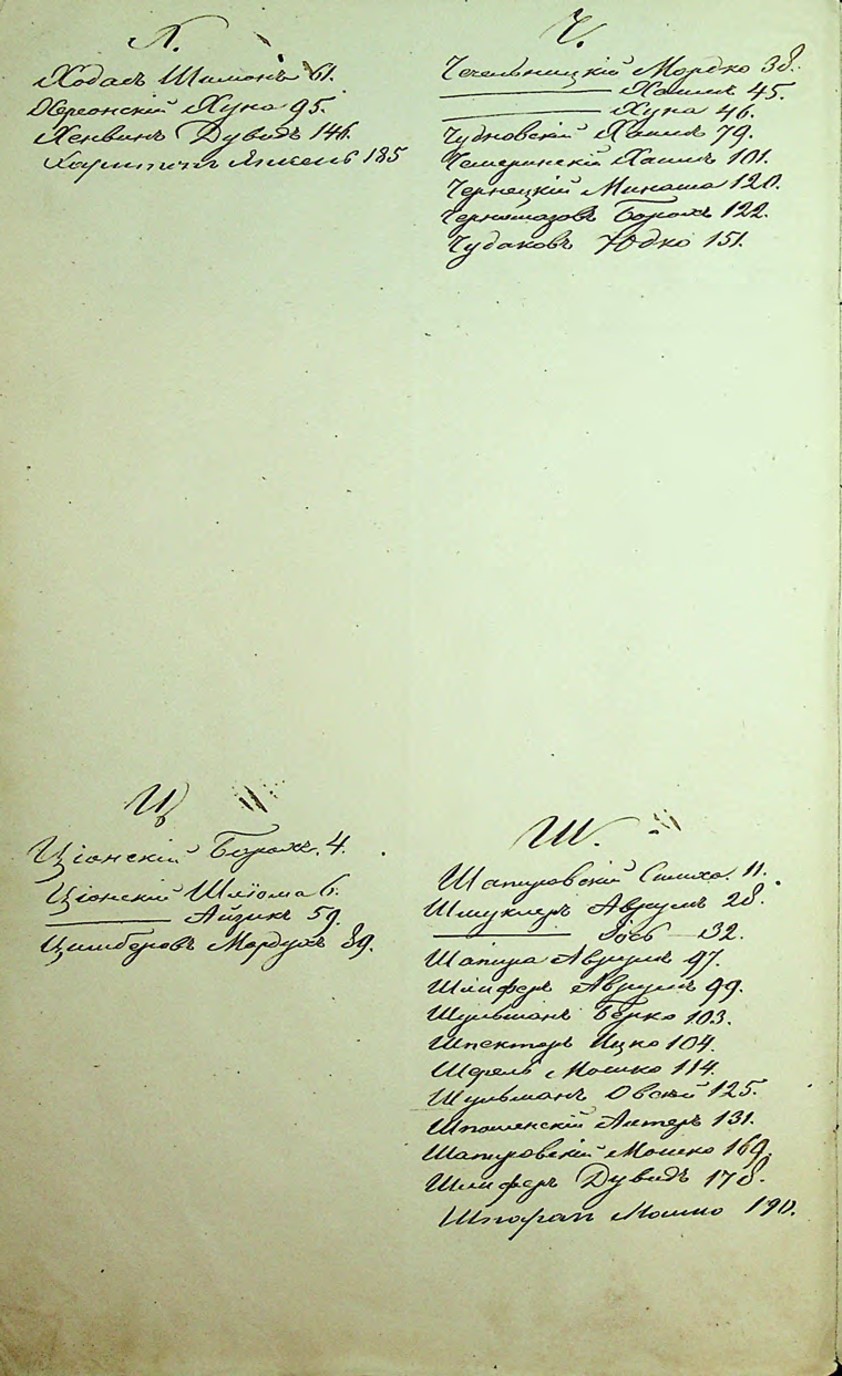 Х.
Ходасъ Шимонъ 61.
Херсонскій Хуна 95.
Хенвинъ Дувидъ 146.
Янкель 185
Ч.
Чечельницкій Мордко 38.
——— Хаимъ 45.
——— Хуна 46.
Чудновскій Хаимъ 79.
Чемеринскій Хаимъ 101.
Чернецкій Минаша 120.
Черномазовъ Борохъ 122.
Чудаковъ Юдко 151.
Ц
Ціонскій Борохъ. 4.
Ціонскій Шліома 6.
——— Айзикъ 59.
Цимберовъ Мордухъ 89.
Ш.
Шапировскій Симха. 11.
Шмуклеръ Аврумъ 28.
——— Іось 32.
Шапира Аврумъ 97.
Шлиферъ Аврумъ 99.
Шульманъ Берко 103.
Шпекторъ Ицко 104.
Шфель Мошко 114.
Шульманъ Овсѣй 125.
Шполенскій Алтеръ 131.
Шапировскій Мошко 169.
Шлиферъ Дувидъ 178.
Мошко 190.